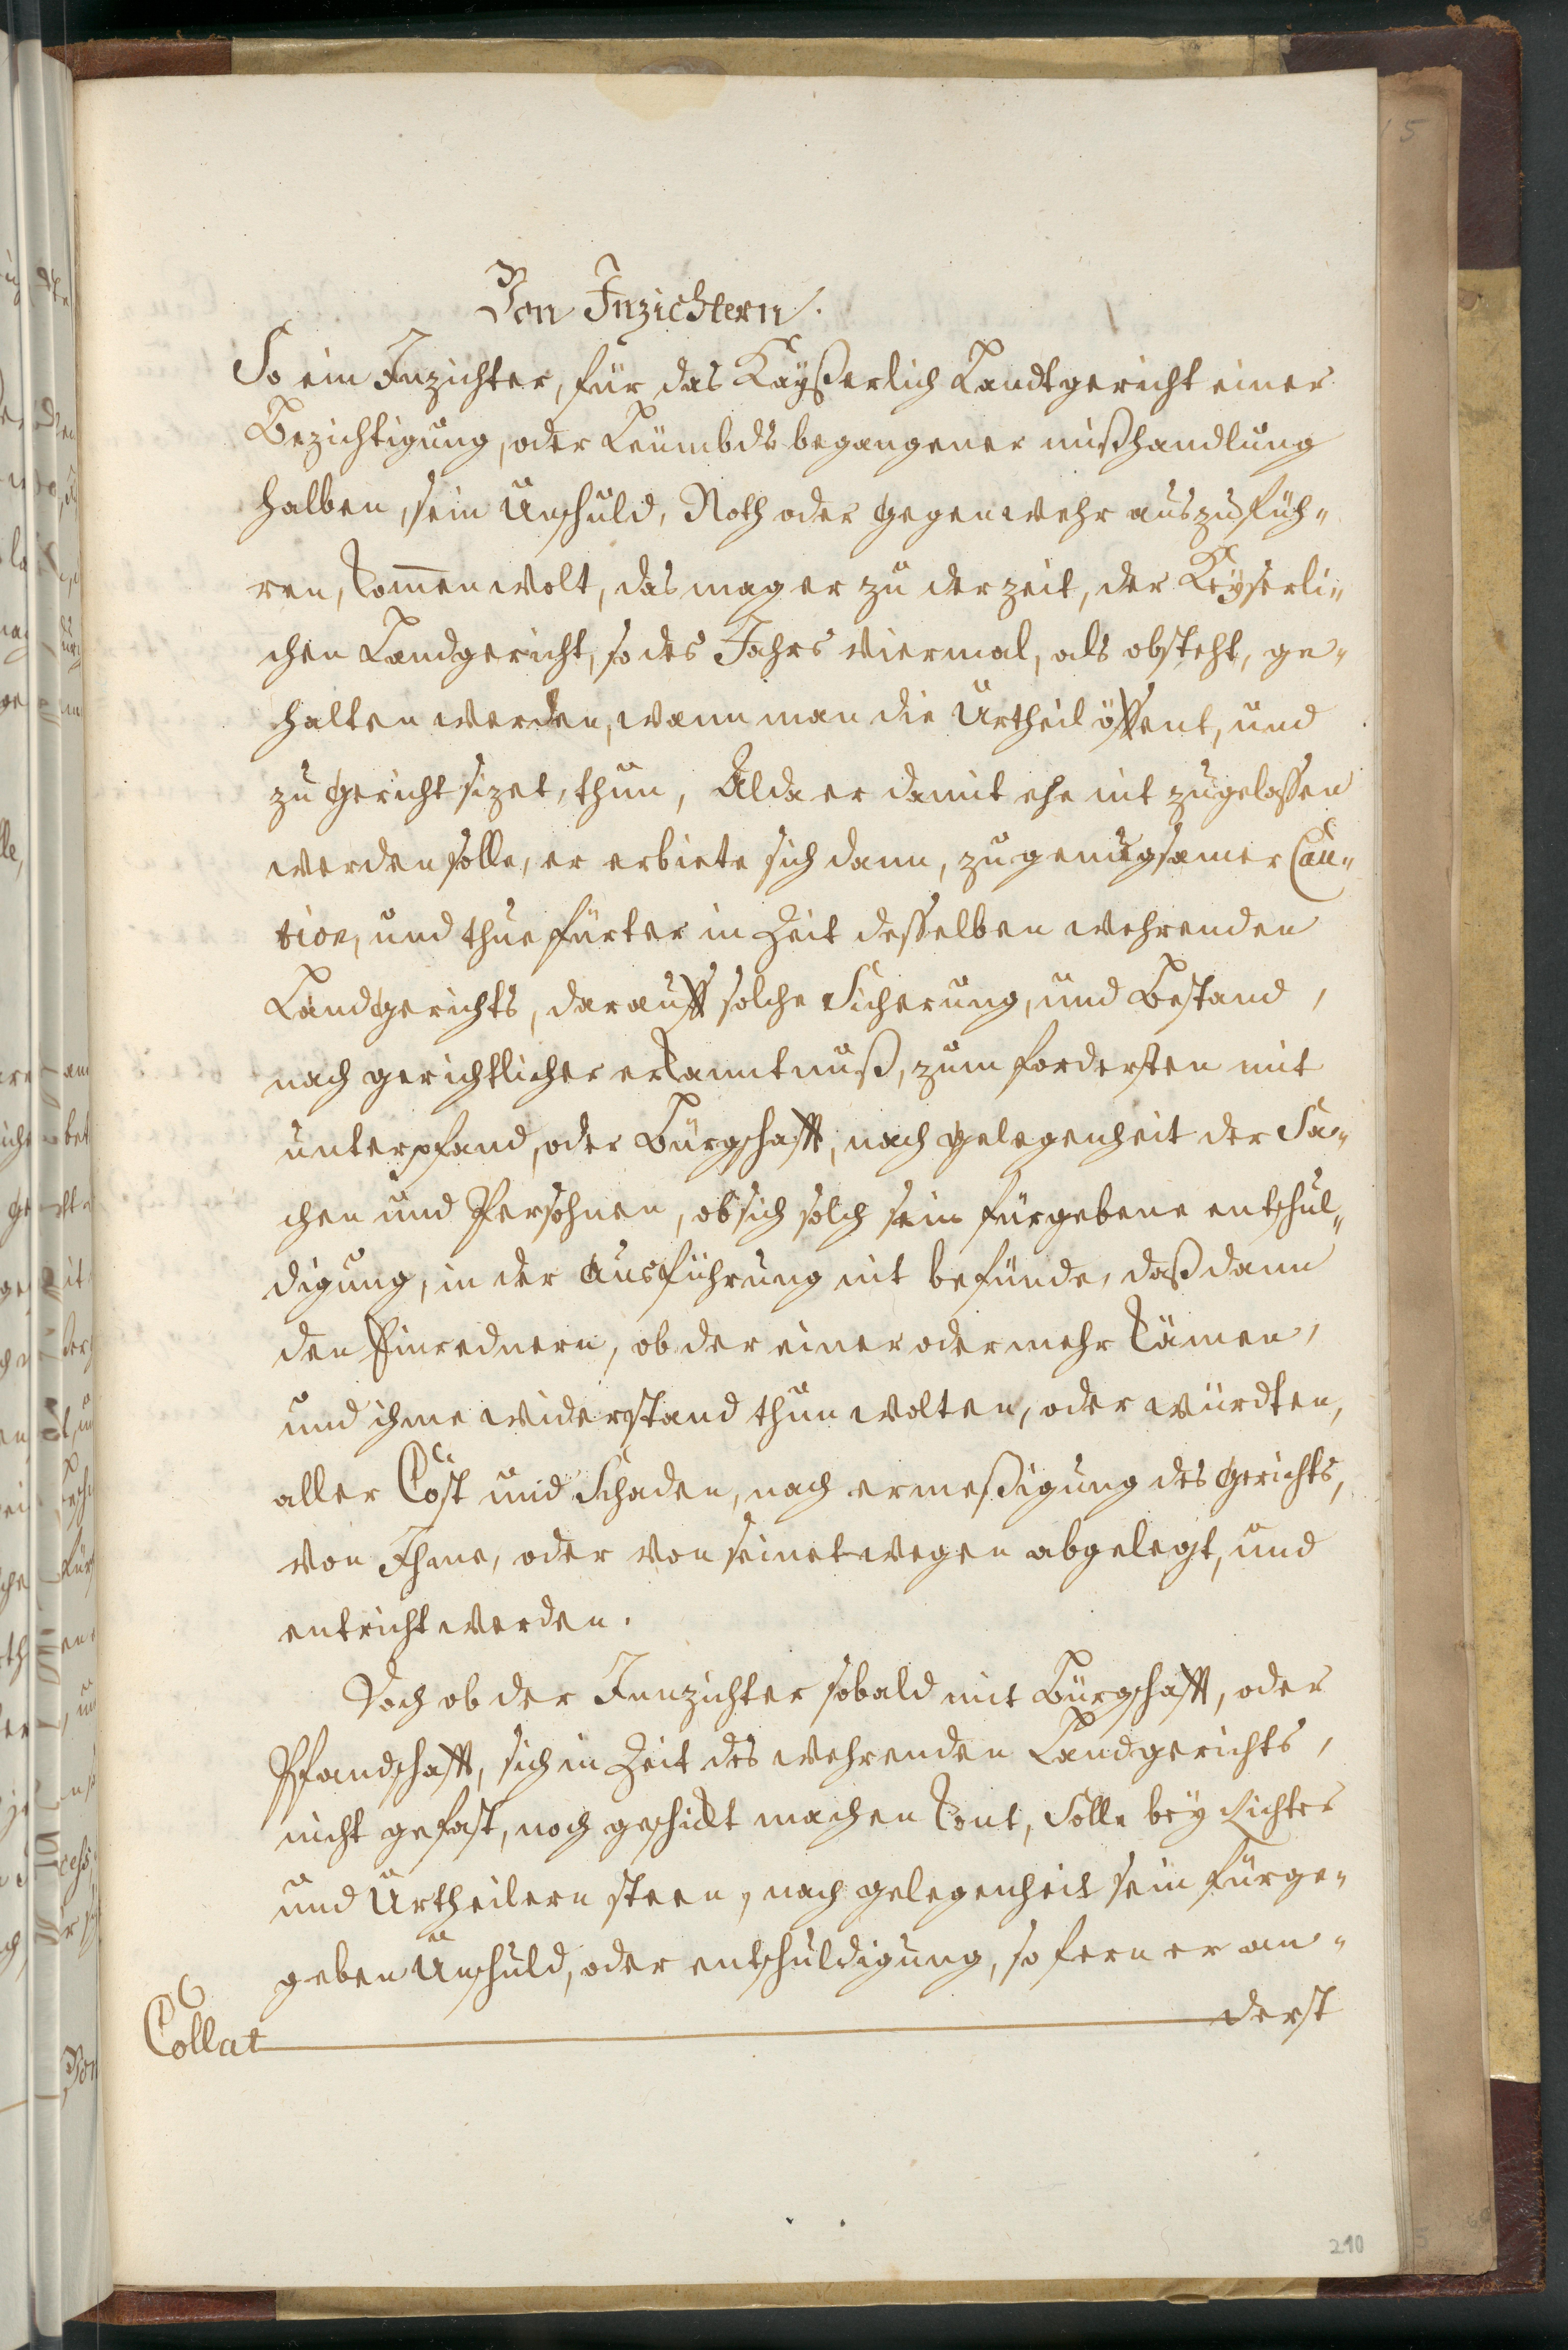 Von Inzichtern.
So ein Inzichter, für das Kayßerlich Landtgericht einer
Bezichtigung, oder Leümbds begangener mißhandlung
halben, sein Unschuld, Noth oder gegenwehr auszufüh-
ren, kom̄en wolt, das mag er zu der zeit, der Keyserli-
chen Landgericht, so des Jahrs viermal, als obsteht, ge-
halten werden, wann man die Urtheil öffent, und
zu gericht sizet, thun, Alda er damit ehe nit zugelassen
werden solle, er erbiete sich dann, zu genugsamer Cau-
tion, und thue fürter in Zeit desselben wehrenden
Landgerichts, darauff solche Sicherung, und Bestand,
nach gerichtlicher erkanntnuß, zum fordersten mit
unterpfand, oder Bürgschafft, nach gelegenheit der Sa-
chen und Persohnen, ob sich solch sein fürgebene entschul-
digung, in der Ausführung nit befünde, daß dann
den Einrednern, ob der einer oder mehr kämen,
und ihme widerstand thun wolten, oder würdten,
aller Cost und Schaden, nach ermeßigung des gerichts,
von Ihme, oder von seinetwegen abgelegt, und
entricht werden.
Doch ob der Innzichter sobald mit Bürgschafft, oder
Pfandschafft, sich in Zeit des wehrenden Landgerichts,
nicht gefast, noch geschickt machen kont, Solle bey Richter
und Urtheilern steen, nach gelegenheit sein fürge-
geben Unschuld, oder entschuldigung, so fern er an-
derst
Collat
210